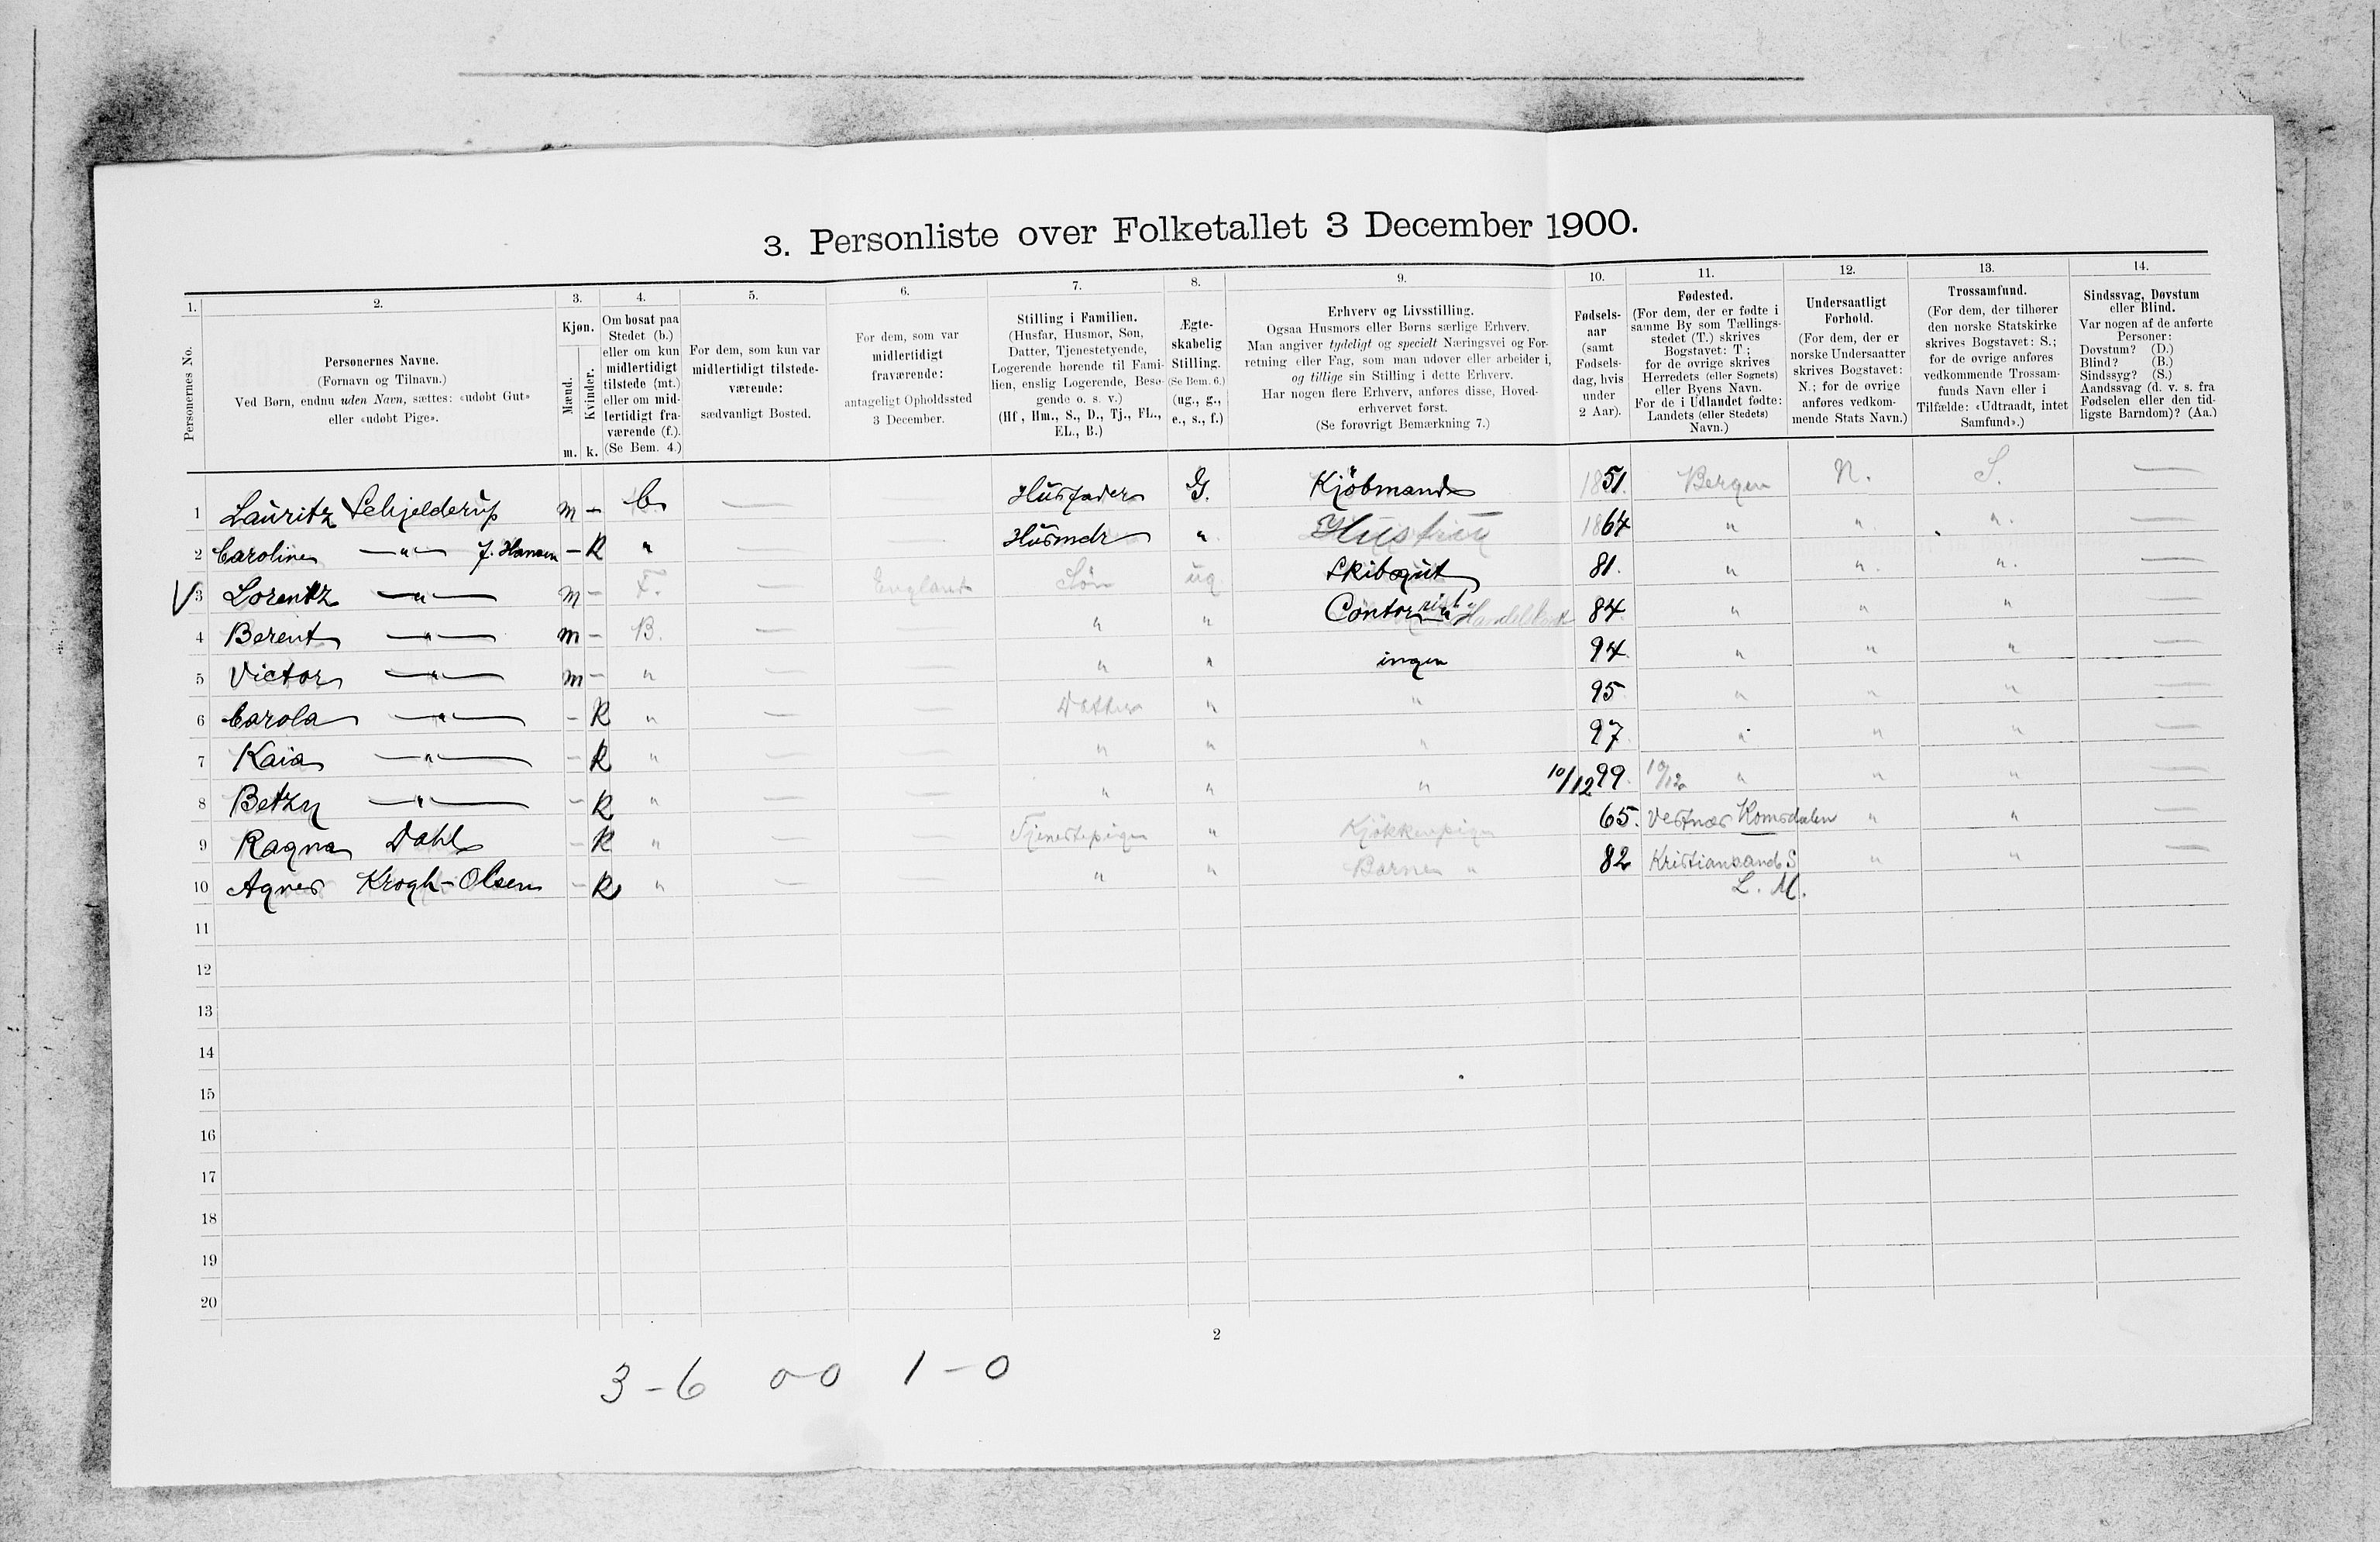 3. Personliste over Folketallet 3 December 1900.
1. 2. 3. 4. 5. 6. 7. 8. 9. 10. 11. 12. 13. 14.
Personernes No.
Personernes Navne.
(Fornavn og Tilnavn.)
Ved Børn, endnu uden Navn, sættes: «udøbt Gut»
eller «udøbt Pige».
Kjøn.
Mænd.
Kvinder.
m. k.
Om bosat paa
Stedet (b.)
eller om kun
midlertidigt
tilstede (mt.)
eller om mid-
lertidigt fra-
værende (f.).
(Se Bem. 4.)
For dem, som kun var
midlertidigt tilstede-
værende:
sædvanligt Bosted.
For dem, som var
midlertidigt
fraværende:
antageligt Opholdssted
3 December.
Stilling i Familien.
(Husfar, Husmor, Søn,
Datter, Tjenestetyende,
Logerende hørende til Fami-
lien, enslig Logerende, Besø-
gende o. s. v.)
(Hf, Hm., S., D., Tj., FL.,
EL., B.)
Ægte-
skabelig
Stilling.
(Se Bem. 6.)
(ug., g.,
e., s., f.)
Erhverv og Livsstilling.
Ogsaa Husmors eller Børns særlige Erhverv.
Man angiver tydeligt og specielt Næringsvei og For-
retning eller Fag, som man udøver eller arbeider i,
og tillige sin Stilling i dette Erhverv.
Har nogen flere Erhverv, anføres disse, Hoved-
erhvervet først.
(Se forøvrigt Bemærkning 7.)
Fødsels-
aar
(samt
Fødsels-
dag, hvis
under
2 Aar).
Fødested.
(For dem, der er fødte i
samme By som Tællings-
stedet (T.) skrives
Bogstavet: T;
for de øvrige skrives
Herredets (eller Sognets)
eller Byens Navn.
For de i Udlandet fødte:
Landets (eller Stedets)
Navn.)
Undersaatligt
Forhold.
(For dem, der er
norske Undersaatter
skrives Bogstavet:
N.; for de øvrige
anføres vedkom-
mende Stats Navn.)
Trossamfund.
(For dem, der tilhører
den norske Statskirke
skrives Bogstavet: S.;
for de øvrige anføres
vedkommende Trossam-
funds Navn eller i
Tilfælde: «Udtraadt, intet
Samfund».)
Sindssvag, Døvstum
eller Blind.
Var nogen af de anførte
Personer:
Døvstum? (D.)
Blind? (B.)
Sindssyg? (S.)
Aandssvag (d. v. s. fra
Fødselen eller den tid-
ligste Barndom)? (Aa.)
1 Lauritz Schjelderup m – b — Husfader G. Kjöbmand 1851. Bergen N. S. —
2 Caroline —"— J. Hansen – K " — — Husmdr " Hustru 1864 " " " —
3 Lorentz —"— m – F. — England Sön ug Skibsgut 81. " " " —
4 Berent —"— m – B. — — " " Contorrist 84 " " " —
5 Victor —"— m – " — — " " ingen 94 " " " —
6 Carola —"— – K " — — Datter " " 95 " " " —
7 Kaia —"— – K " — — " " " 97 " " " —
8 Betzy —"— – K " — — " " " 10/12 99. 10/12 " " " —
9 Ragna Dahl – K " — — Tjenestepige " Kjökkenpige 65. Vestnæs Romsdalen " " —
10 Agnes Krogh-Olsen – K " — — " " Barne " 82 Kristiansand S " " —
L. M.
11
12
13
14
15
16
17
18
19
20
2
3 – 6 0-0 1 – 0